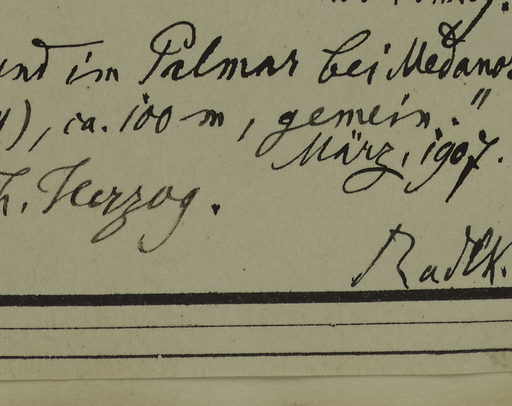 und im Palmar bei Medanos
), ca. 100 m, gemein."
März, 1907.
Th. Herzog.
Radlk.